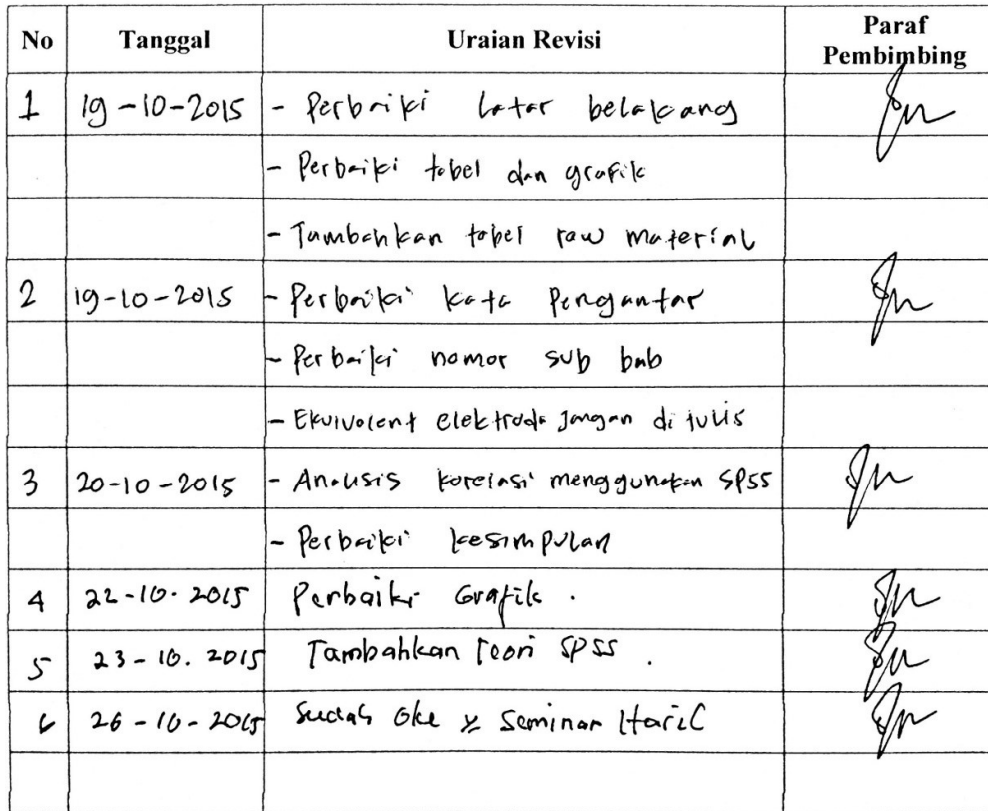 No Tanggal Uraian Revisi Paraf Pembimbing
1 19-10-2015 - Perbaiki latar belakang
- Perbaiki tabel dan grafik
- Tambahkan tabel raw material
2 19-10-2015 - Perbaiki kata Pengantar
- Perbaiki nomor sub bab
- Ekuivalent elektroda jangan di tulis
3 20-10-2015 - Analisis korelasi menggunakan SPSS
- Perbaiki kesimpulan
4 22-10-2015 Perbaiki Grafik .
5 23-10.2015 Tambahkan Teori SPSS .
6 26-10-2015 Sudah Oke Seminar Hasil